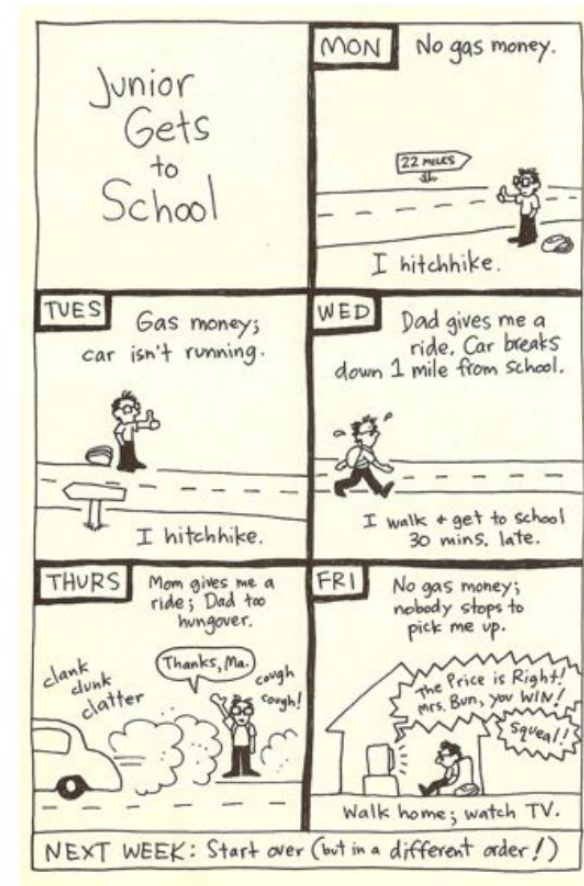 Junior
Gets
to
School
MON
No gas money.
22 MILES
I hitchhike.
TUES
Gas money;
car isn't running.
I hitchhike.
WED
Dad gives me a
ride. Car breaks
down 1 mile from school.
I walk + get to school
30 mins. late.
THURS
Mom gives me a
ride; Dad too
hungover.
clank
clunk
clatter
Thanks, Ma.
cough
cough!
FRI
No gas money;
nobody stops to
pick me up.
The Price is Right!
Mrs. Bun, you WIN!
Squeal!!
Walk home; watch TV.
NEXT WEEK: Start over (but in a different order!)